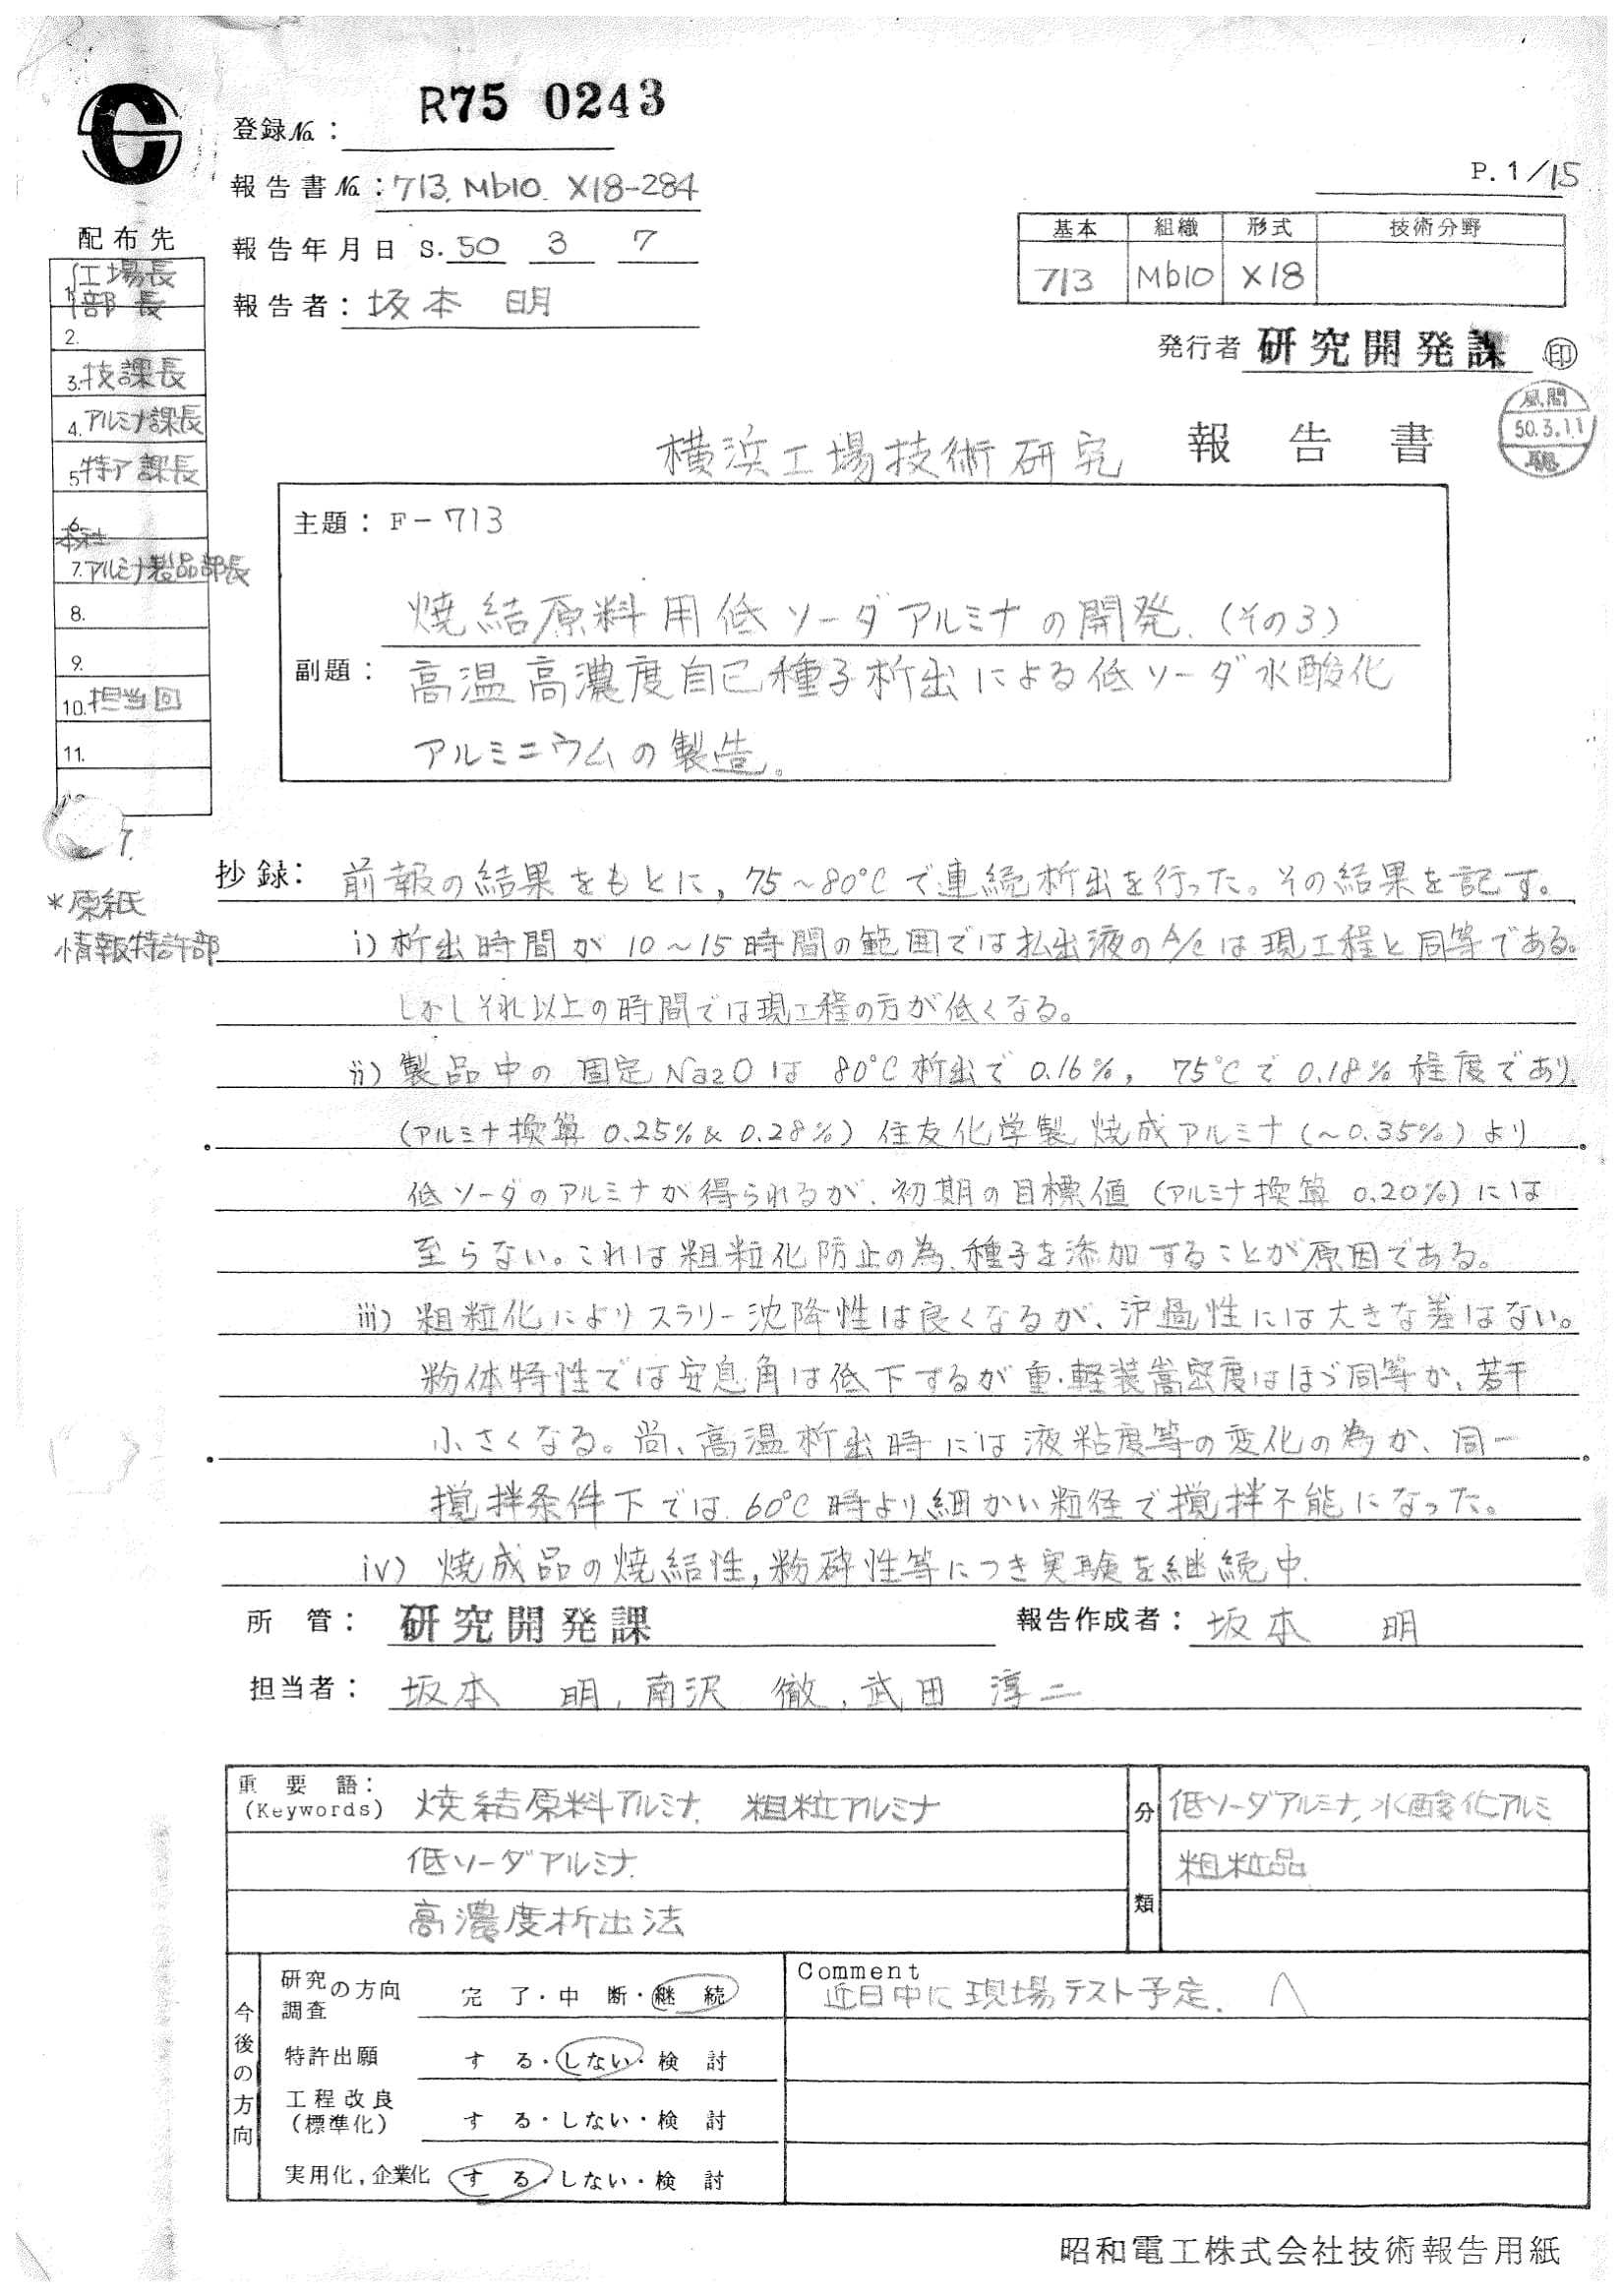 登録No.: R75 0243
報告書No.: 713. Mb10. X18-284
P. 1/15
報告年月日 S. 50 3 7
報告者: 坂本 明
基本 組織 形式 技術分野
713 Mb10 X18
発行者 研究開発課 印
風間
50.3.11
配布先
1. 工場長
部長
2.
3. 技課長
4. アルミナ課長
5. 特ア課長
6.
本社
7. アルミナ製品部長
8.
9.
10. 担当回
11.
*原紙
情報特許部
横浜工場技術研究 報告書
主題: F-713
焼結原料用低ソーダアルミナの開発.(その3)
副題: 高温高濃度自己種子析出による低ソーダ水酸化
アルミニウムの製造。
抄録: 前報の結果をもとに, 75~80℃で連続析出を行った。その結果を記す。
i) 析出時間が10~15時間の範囲では払出液のA/Cは現工程と同等である。
しかしそれ以上の時間では現工程の方が低くなる。
ii) 製品中の固定Na2Oは80℃析出で0.16%, 75℃で0.18%程度であり,
(アルミナ換算 0.25% & 0.28%) 住友化学製焼成アルミナ(~0.35%)より
低ソーダのアルミナが得られるが、初期の目標値(アルミナ換算0.20%)には
至らない。これは粗粒化防止の為、種子を添加することが原因である。
iii) 粗粒化によりスラリー沈降性は良くなるが、沪過性には大きな差はない。
粉体特性では安息角は低下するが重・軽装嵩密度はほゞ同等か、若干
小さくなる。尚、高温析出時には液粘度等の変化の為か、同一
撹拌条件下では60℃時より細かい粒径で撹拌不能になった。
iv) 焼成品の焼結性, 粉砕性等につき実験を継続中.
所管: 研究開発課 報告作成者: 坂本 明
担当者: 坂本 明, 南沢 徹, 武田 淳二
重要語: (Keywords) 焼結原料アルミナ. 粗粒アルミナ
低ソーダアルミナ.
高濃度析出法
分類
低ソーダアルミナ, 水酸化アルミ
粗粒品
今後の方向
研究調査の方向 完了・中断・継続
特許出願 する・しない・検討
工程改良(標準化) する・しない・検討
実用化, 企業化 する・しない・検討
Comment
近日中に現場テスト予定.
昭和電工株式会社技術報告用紙